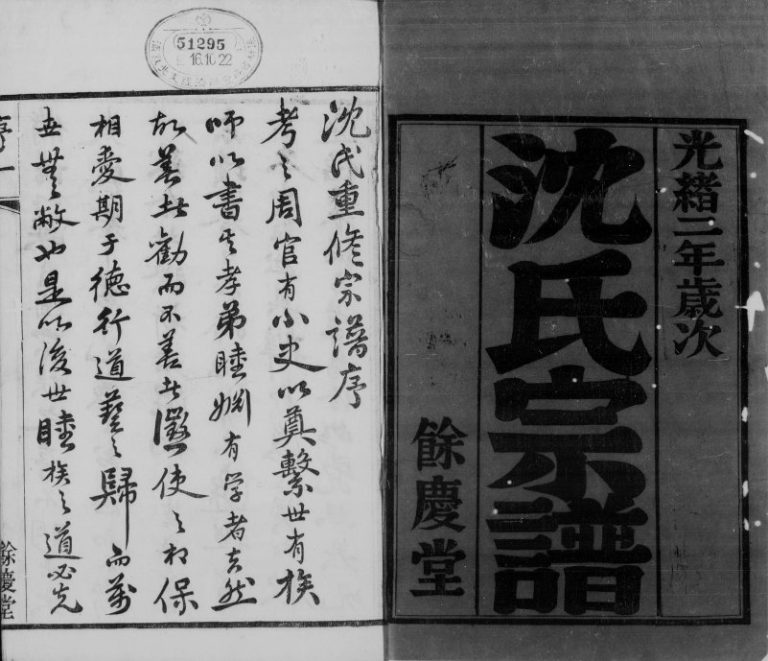 光緒二年歲次
沈氏宗譜
餘慶堂
51295
16.10.22
沈氏重修宗譜序
考之周官有小史以奠繫世有族
師以書其孝弟睦婣有学者夫然
故善者勸而不善者懲使之相保
相愛期于德行道藝之歸而萬
世無敝也是以後世睦族之道必先
序一
餘慶堂